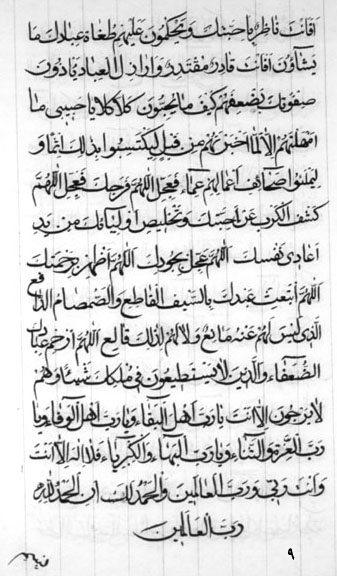 افانت ناظر یا حبیبك و یحكمون علیهم طغاة عبادك ما
یشاؤن افانت قادر مقتدر و اراذل العباد یاذون
صفوتك بضعفهم كیف ما یحبون كلا كلا یا حبیبی ما
امهلتهم الا لما اخبرتهم من قبل لیكتسبوا بذلك اثما و
لیملئوا صحائف اعمالهم عماء فعجل اللهم فرجك فعجل اللهم
كشف الكرب عن احبتك و تخلیص اولیائك من ید
اعادی نفسك اللهم عجل بجودك اللهم اظهر برحمتك
اللهم ابتعث عبدك بالسیف القاطع و الصمصام الدافع
الذی لیس لهم عنه مانع و لا لهم لذلك قالع اللهم ارحم عبادك
الضعفاء و الذین لا یستطیعون فی ملكك شیئا و هم
لا یرجون الا انت یا رب اهل البقاء و یا رب اهل الوفاء و یا
رب العزة و الثناء و یا رب البهاء و الكبریاء فلا اله الا انت
و انت ربی و رب العالمین و الحمد لك ان الحمد لله
رب العالمین
۹